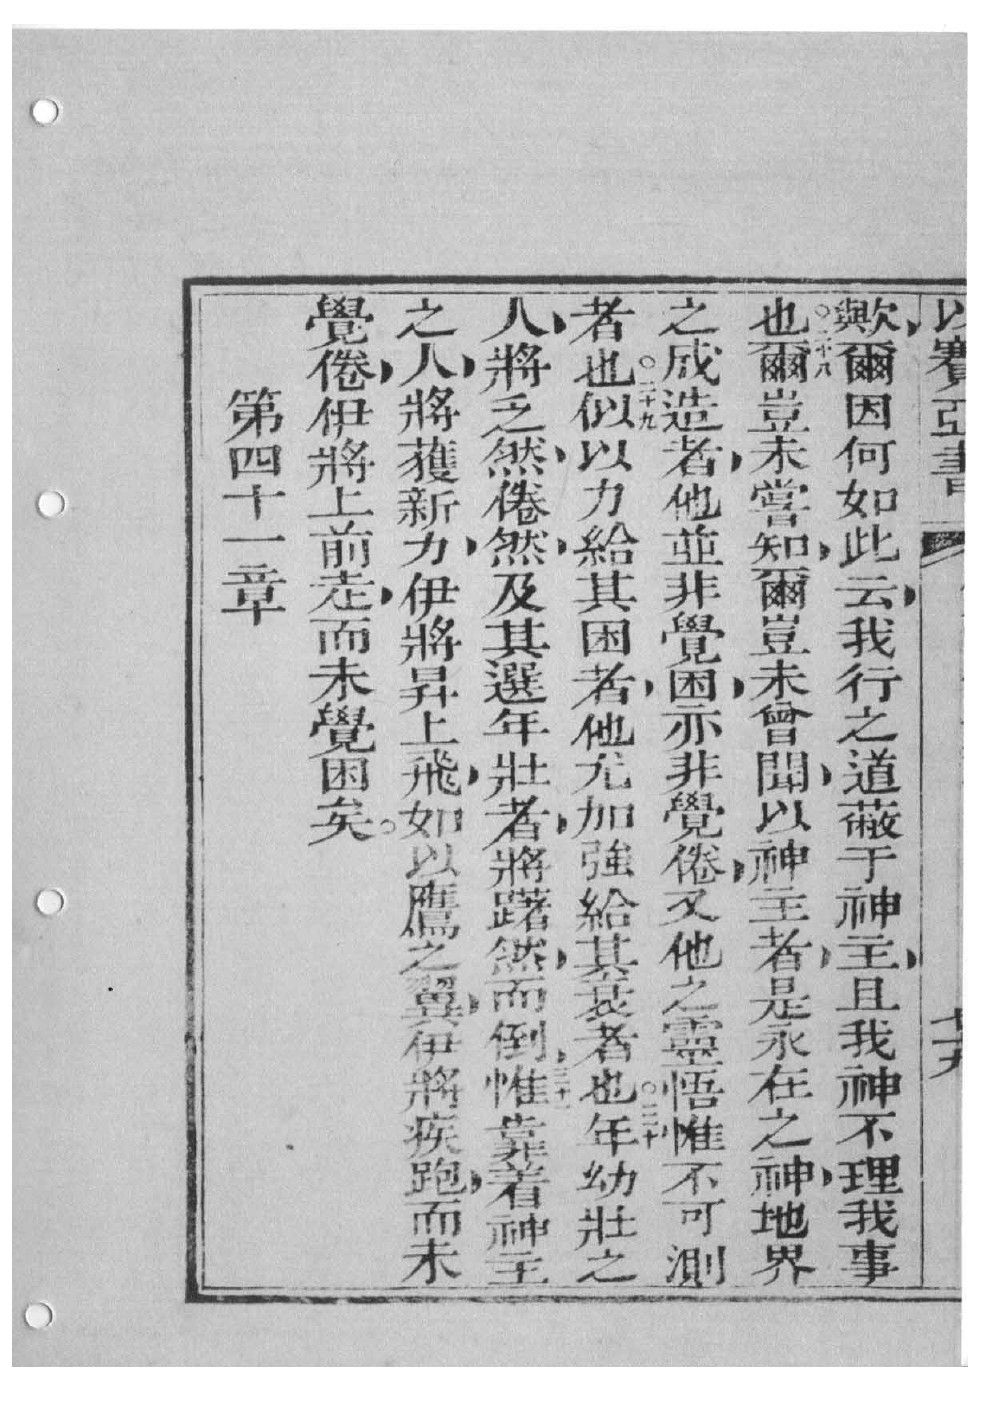 以賽亞書
歟爾因何如此云我行之道蔽于神主且我神不理我事
也○二十八爾豈未嘗知爾豈未曾聞以神主者是永在之神地界
之成造者他並非覺困亦非覺倦又他之靈悟惟不可測
者也○二十九似以力給其困者他尤加強給其衰者也○三十年幼壯之
人將乏然倦然及其選年壯者將躇然而倒三十一惟靠着神主
之人將獲新力伊將昇上飛如以鷹之翼伊將疾跑而未
覺倦伊將上前走而未覺困矣○
第四十一章